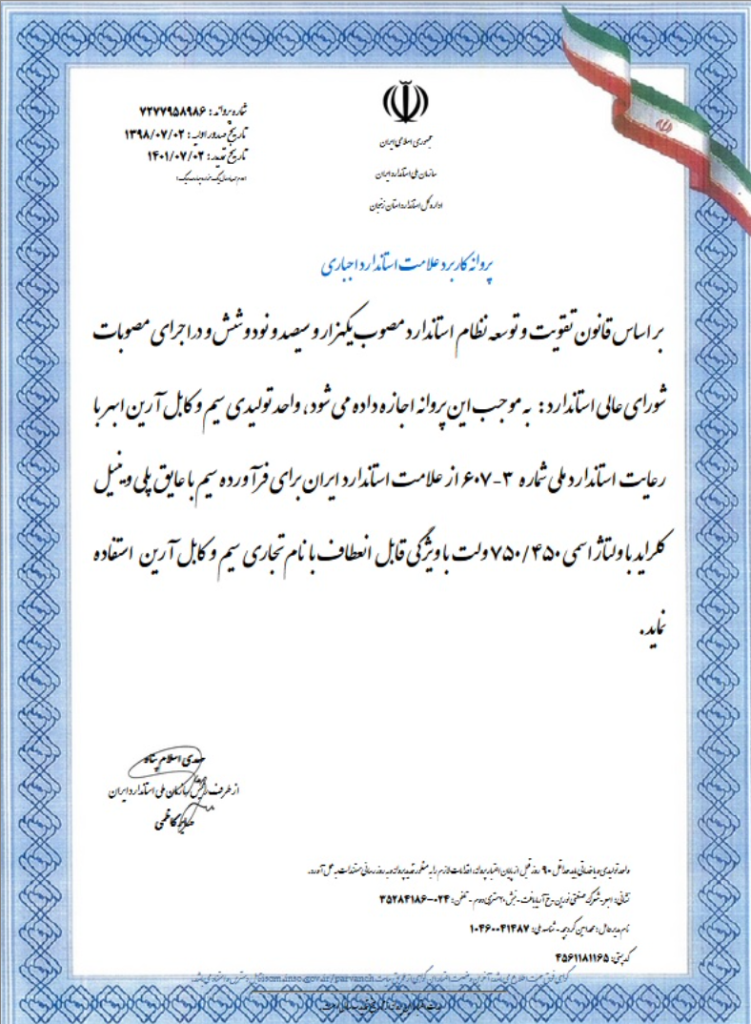 جمهوری اسلامی ایران
سازمان ملی استاندارد ایران
اداره کل استاندارد استان زنجان
شماره پروانه : ۷۲۷۷۹۵۸۹۸۶
تاریخ صدور اولیه : ۱۳۹۸/۰۷/۰۲
تاریخ تمدید : ۱۴۰۱/۰۷/۰۲
پروانه کاربرد علامت استاندارد اجباری
بر اساس قانون تقویت و توسعه نظام استاندارد مصوب یکهزار و سیصد و نود و شش و در اجرای مصوبات
شورای عالی استاندارد : به موجب این پروانه اجازه داده می شود، واحد تولیدی سیم و کابل آرین ابهر با
رعایت استاندارد ملی شماره ۳-۶۰۷ از علامت استاندارد ایران برای فرآورده سیم با عایق پلی وینیل
کلراید با ولتاژ اسمی ۷۵۰/۴۵۰ ولت با ویژگی قابل انعطاف با نام تجاری سیم و کابل آرین استفاده
نماید.
مهدی اسلام پناه
از طرف رئیس سازمان ملی استاندارد ایران
کاظمی
واحد تولیدی و یا خدماتی باید حداقل ۹۰ روز قبل از پایان اعتبار پروانه، اقدامات لازم را به منظور تمدید پروانه و به روز رسانی مستندات به عمل آورد.
نشانی: ابهر - شهرک صنعتی نورین - نبش ۲۰ متری دوم - تلفن: ۰۲۴-۳۵۲۸۴۱۸۶
نام مدیر عامل : محمد امین - شناسه ملی: ۱۰۴۶۰۰۴۱۴۸۷
کد پستی: ۴۵۶۱۱۸۱۱۶۵